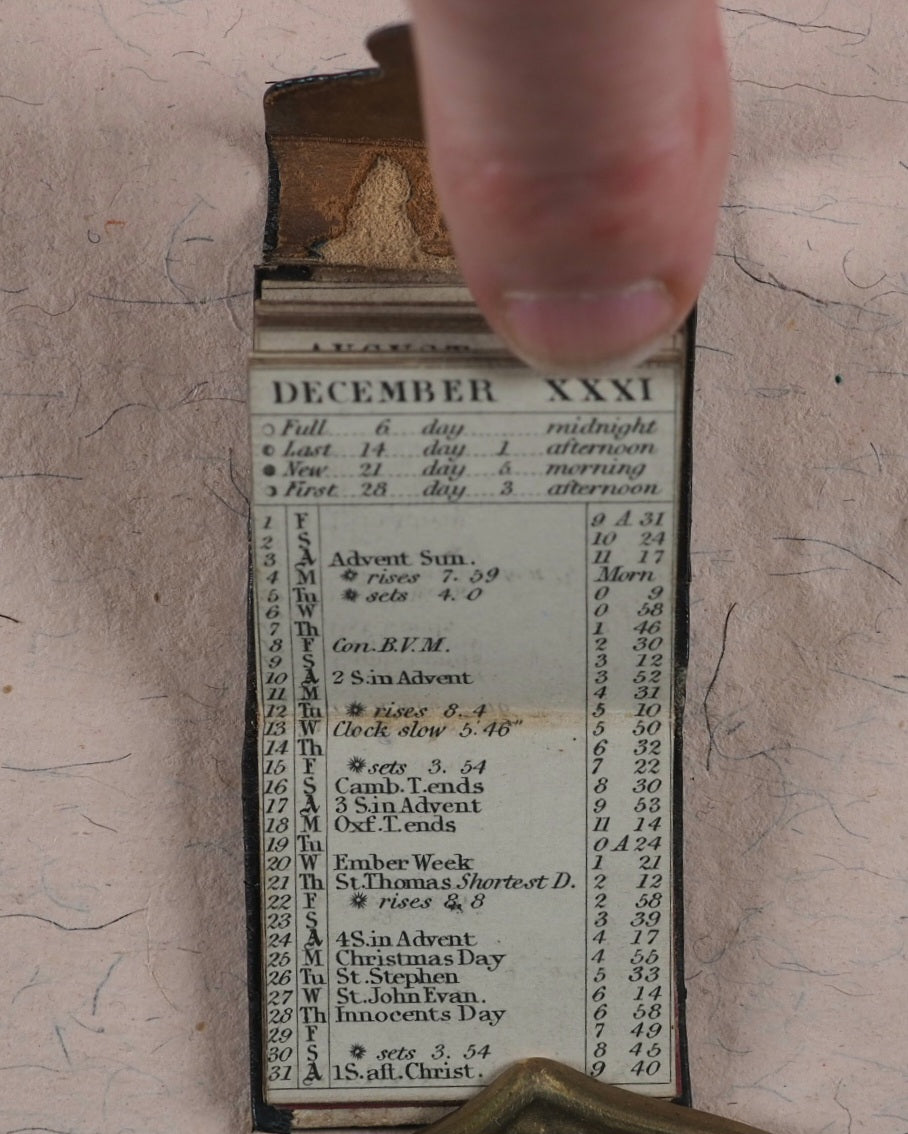 AUGUST
DECEMBER XXXI
Full 6 day midnight
Last 14 day 1 afternoon
New 21 day 5 morning
First 28 day 3 afternoon
1 F 9 A 31
2 S 10 24
3 A Advent Sun. 11 17
4 M rises 7. 59 Morn
5 Tu sets 4. 0 0 9
6 W 0 58
7 Th 1 46
8 F Con. B.V.M. 2 30
9 S 3 12
10 A 2 S. in Advent 3 52
11 M 4 31
12 Tu rises 8. 4 5 10
13 W Clock slow 5' 46" 5 50
14 Th 6 32
15 F sets 3. 54 7 22
16 S Camb. T. ends 8 30
17 A 3 S. in Advent 9 53
18 M Oxf. T. ends 11 14
19 Tu 0 A 24
20 W Ember Week 1 21
21 Th St. Thomas Shortest D. 2 12
22 F rises 8. 8 2 58
23 S 3 39
24 A 4 S. in Advent 4 17
25 M Christmas Day 4 55
26 Tu St. Stephen 5 33
27 W St. John Evan. 6 14
28 Th Innocents Day 6 58
29 F 7 49
30 S sets 3. 54 8 45
31 A 1 S. aft. Christ. 9 40